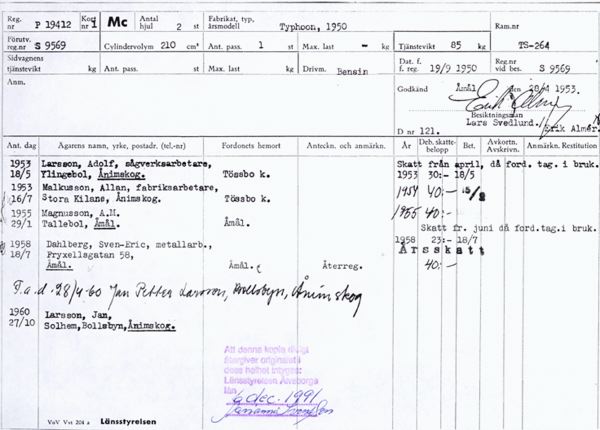 Reg. nr P 19412 Kort nr 1 Mc Antal hjul 2 st Fabrikat, typ, årsmodell Typhoon, 1950 Ram.nr
Förutv. reg.nr S 9569 Cylindervolym 210 cm³ Ant. pass. 1 st Max. last - kg Tjänstevikt 85 kg TS-264
Sidvagnens tjänstevikt kg Ant. pass. st Max. last kg Drivm. Bensin Dat. f. f. reg. 19/9 1950 Reg.nr vid bes. S 9569
Anm. Godkänd Åmål den 28/4 1953.
Besiktningsman
Lars Svedlund. / Erik Almér.
D nr 121.
Ant. dag Ägarens namn, yrke, postadr. (tel.-nr) Fordonets hemort Anteckn. och anmärkn. År Deb. skatte-belopp Bet. Avkortn. Avskrivn. Anmärkn. Restitution
1953 Larsson, Adolf, sågverksarbetare, Skatt från april, då ford. tag. i bruk.
18/5 Ylingebol, Ånimskog. Tössbo k. 1953 30:- 18/5
1953 Malkusson, Allan, fabriksarbetare, 1954 40:-
16/7 Stora Kilane, Ånimskog. Tössbo k.
1955 Magnusson, A.M. 1955 40:-
29/1 Tallebol, Åmål. Åmål. Skatt fr. juni då ford.tag.i bruk.
1958 Dahlberg, Sven-Eric, metallarb., 1958 23:- 18/7
18/7 Fryxellsgatan 58, Årsskatt
Åmål. Åmål. Återreg. 40:-
T.a.d. 28/4-60 Jan Petter Larsson, Bollsbyn, Ånimskog
1960 Larsson, Jan,
27/10 Solhem,Bollsbyn,Ånimskog.
Att denna kopia riktigt
återgiver originalet i
dess helhet intygas:
Länsstyrelsen Älvsborgs
län
6 dec. 1991
VoV Vst 204 a Länsstyrelsen